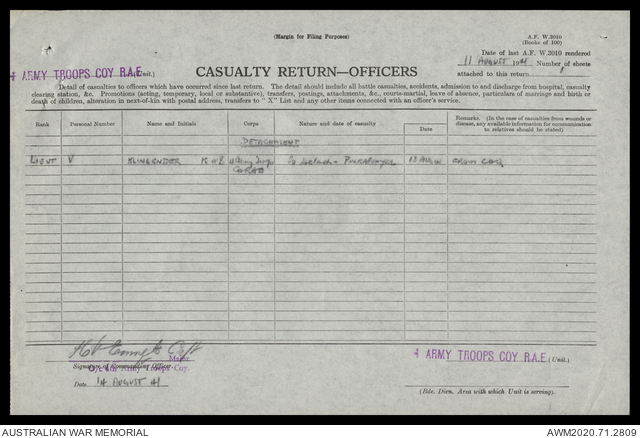 (Margin for Filing Purposes)
A.F. W.3010
(Books of 100)
Date of last A.F. W.3010 rendered
11 AUGUST 1941 Number of sheets
attached to this return
4 ARMY TROOPS COY R.A.E. (Unit.)
CASUALTY RETURN—OFFICERS
Detail of casualties to officers which have occurred since last return. The detail should include all battle casualties, accidents, admission to and discharge from hospital, casualty
clearing station, &c. Promotions (acting, temporary, local or substantive), transfers, postings, attachments, &c., courts-martial, leave of absence, particulars of marriage and birth or
death of children, alteration in next-of-kin with postal address, transfers to "X" List and any other items connected with an officer's service.
Rank Personal Number Name and Initials Corps Nature and date of casualty Date Remarks. (In the case of casualties from wounds or
disease, any available information for communication
to relatives should be stated)
DETACHMENT
LIEUT V KLINGENDER K
4 ARMY TROOPS COY R.A.E. (Unit.)
Major
Signature of Commanding Officer
O/C 4th Army Troops Coy.
Date 14 AUGUST 41
(Bde. Divn. Area with which Unit is serving).
AUSTRALIAN WAR MEMORIAL
AWM2020.71.2809